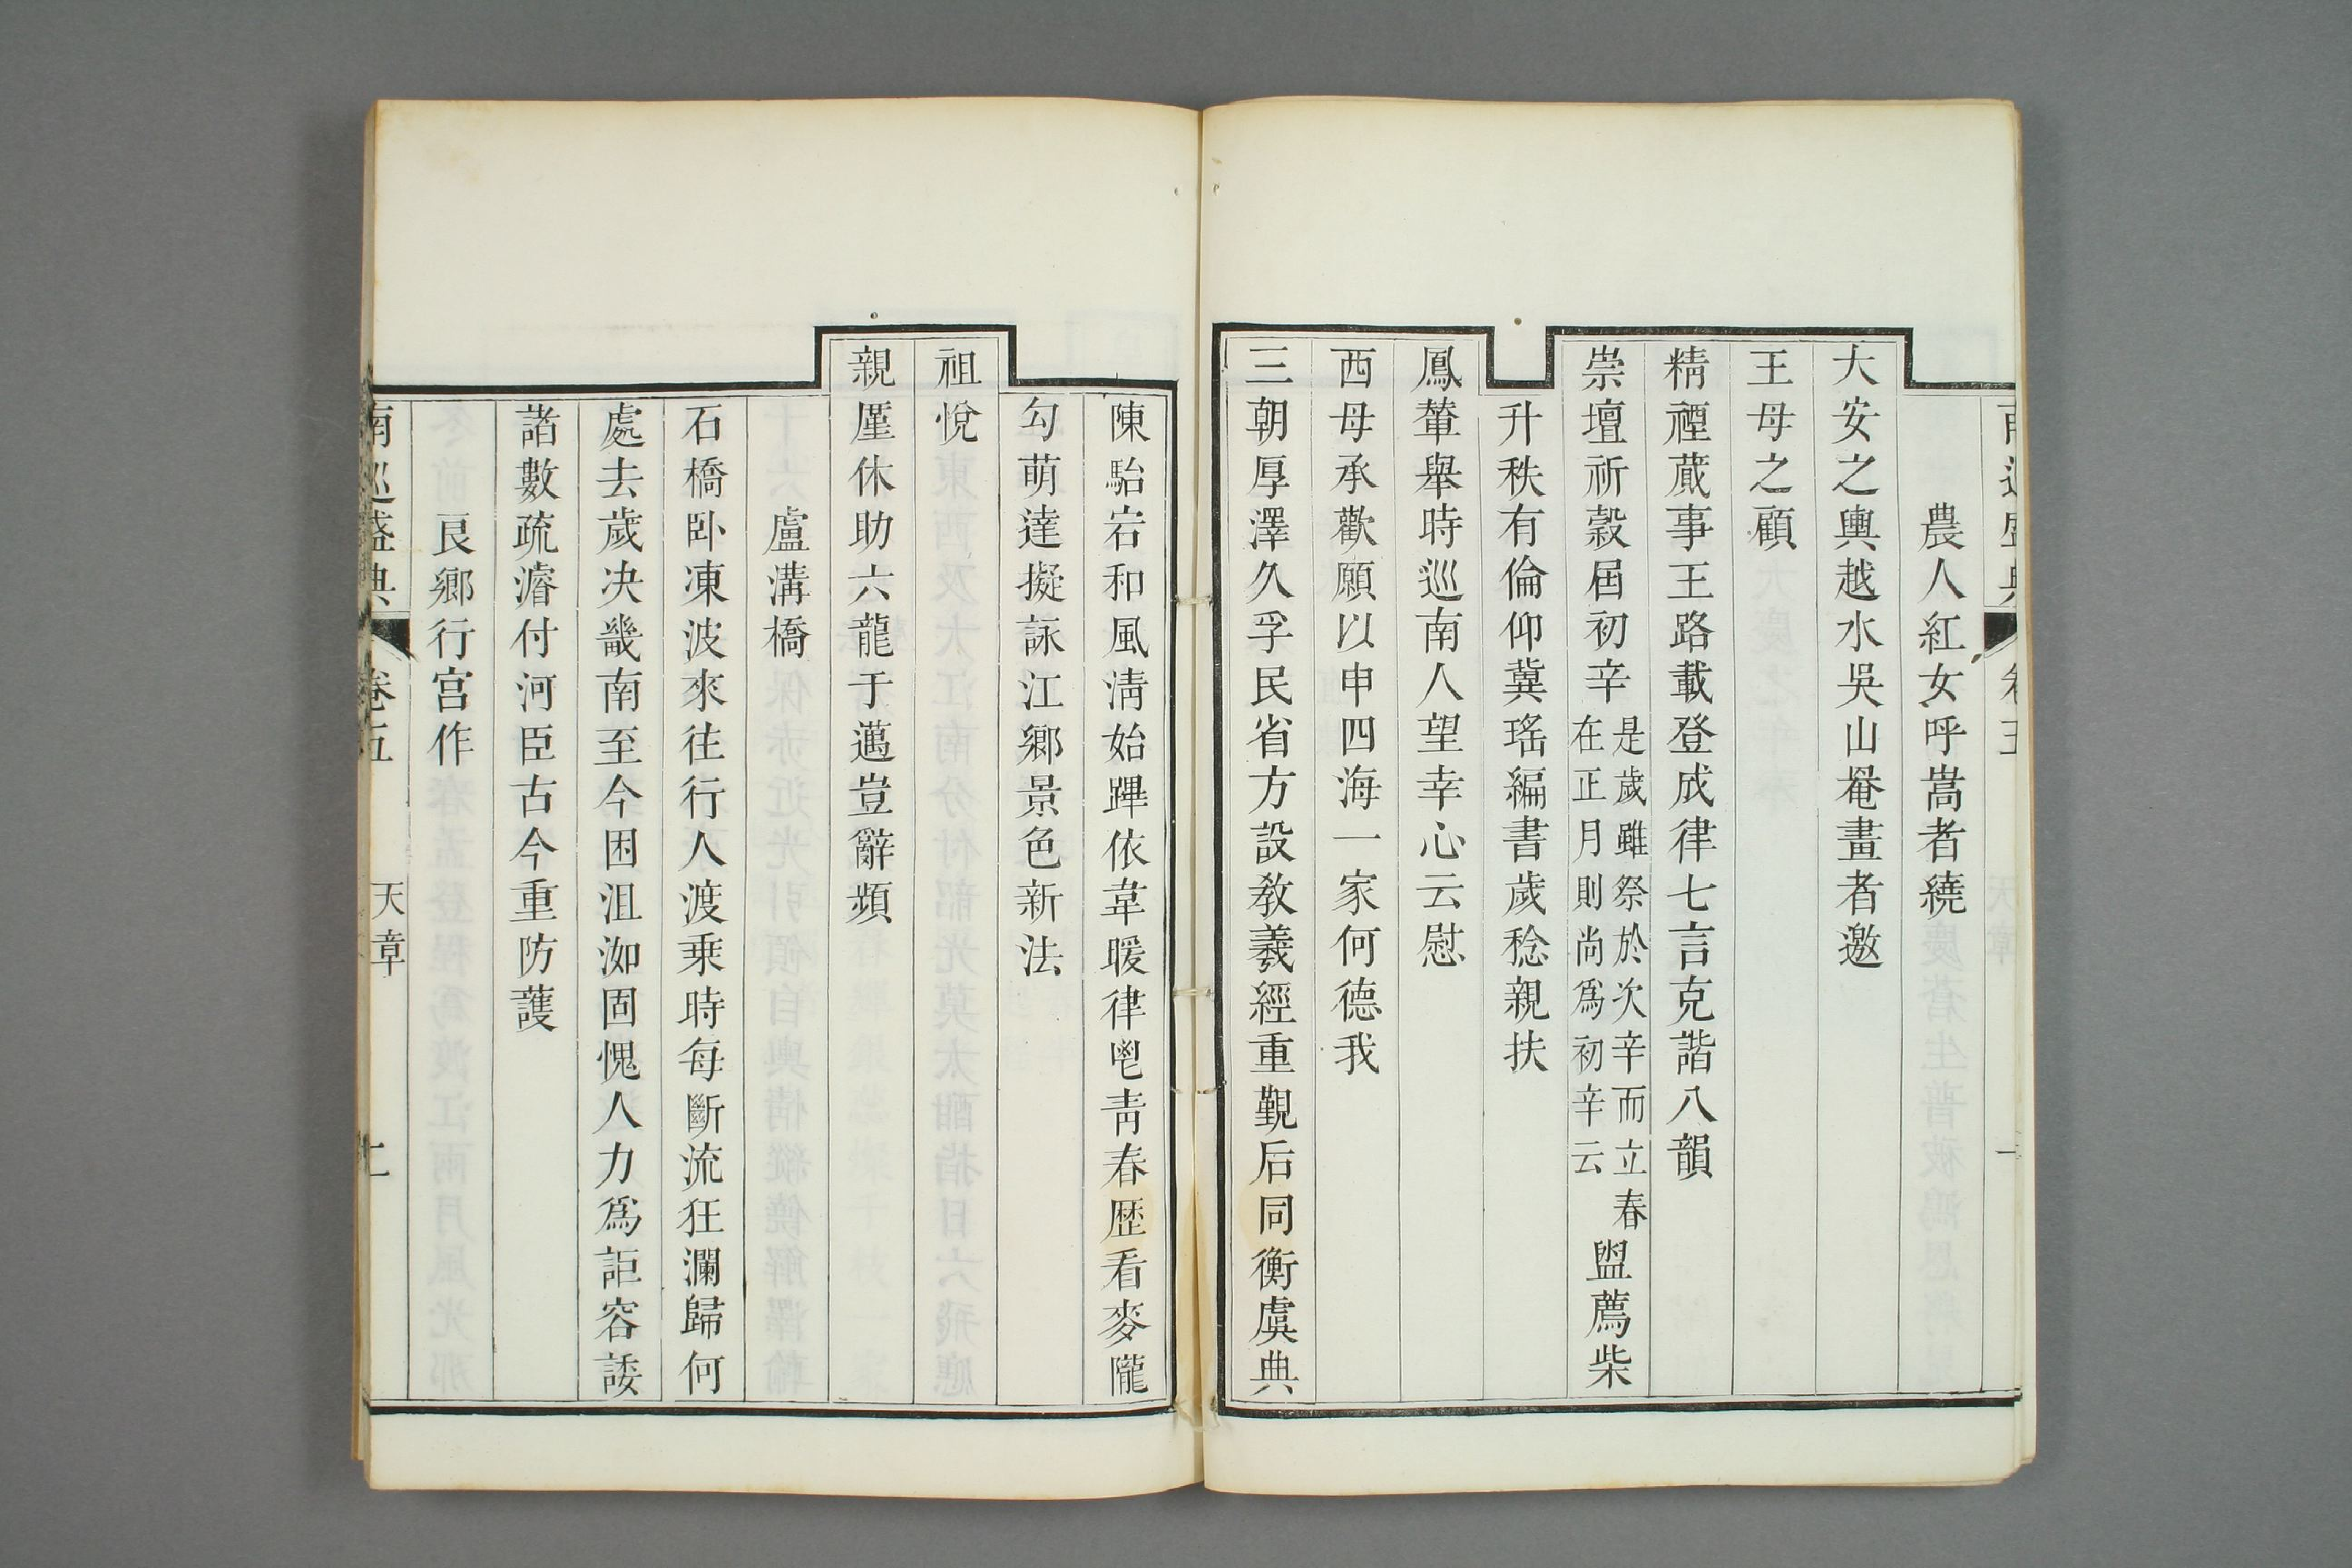 農人紅女呼嵩者繞
大安之輿越水吳山罨畫者邀
王母之顧
精禋蕆事王路載登成律七言克諧八韻
崇壇祈穀屆初辛是歲雖祭於次辛而立春在正月則尚爲初辛云盥薦柴
升秩有倫仰冀瑤編書歲稔親扶
鳳輦舉時巡南人望幸心云慰
西母承歡願以申四海一家何德我
三朝厚澤久孚民省方設教羲經重覲后同衡虞典
陳駘宕和風淸始蹕依韋暖律鬯靑春歷看麥隴
勾萌達擬詠江鄉景色新法
祖悅
親厪休助六龍于邁豈辭頻
盧溝橋
石橋卧凍波來往行人渡乘時每斷流狂瀾歸何
處去歲决畿南至今困沮洳固愧人力爲詎容諉
諸數疏濬付河臣古今重防護
良鄉行宮作
南巡盛典 卷五 天章 二